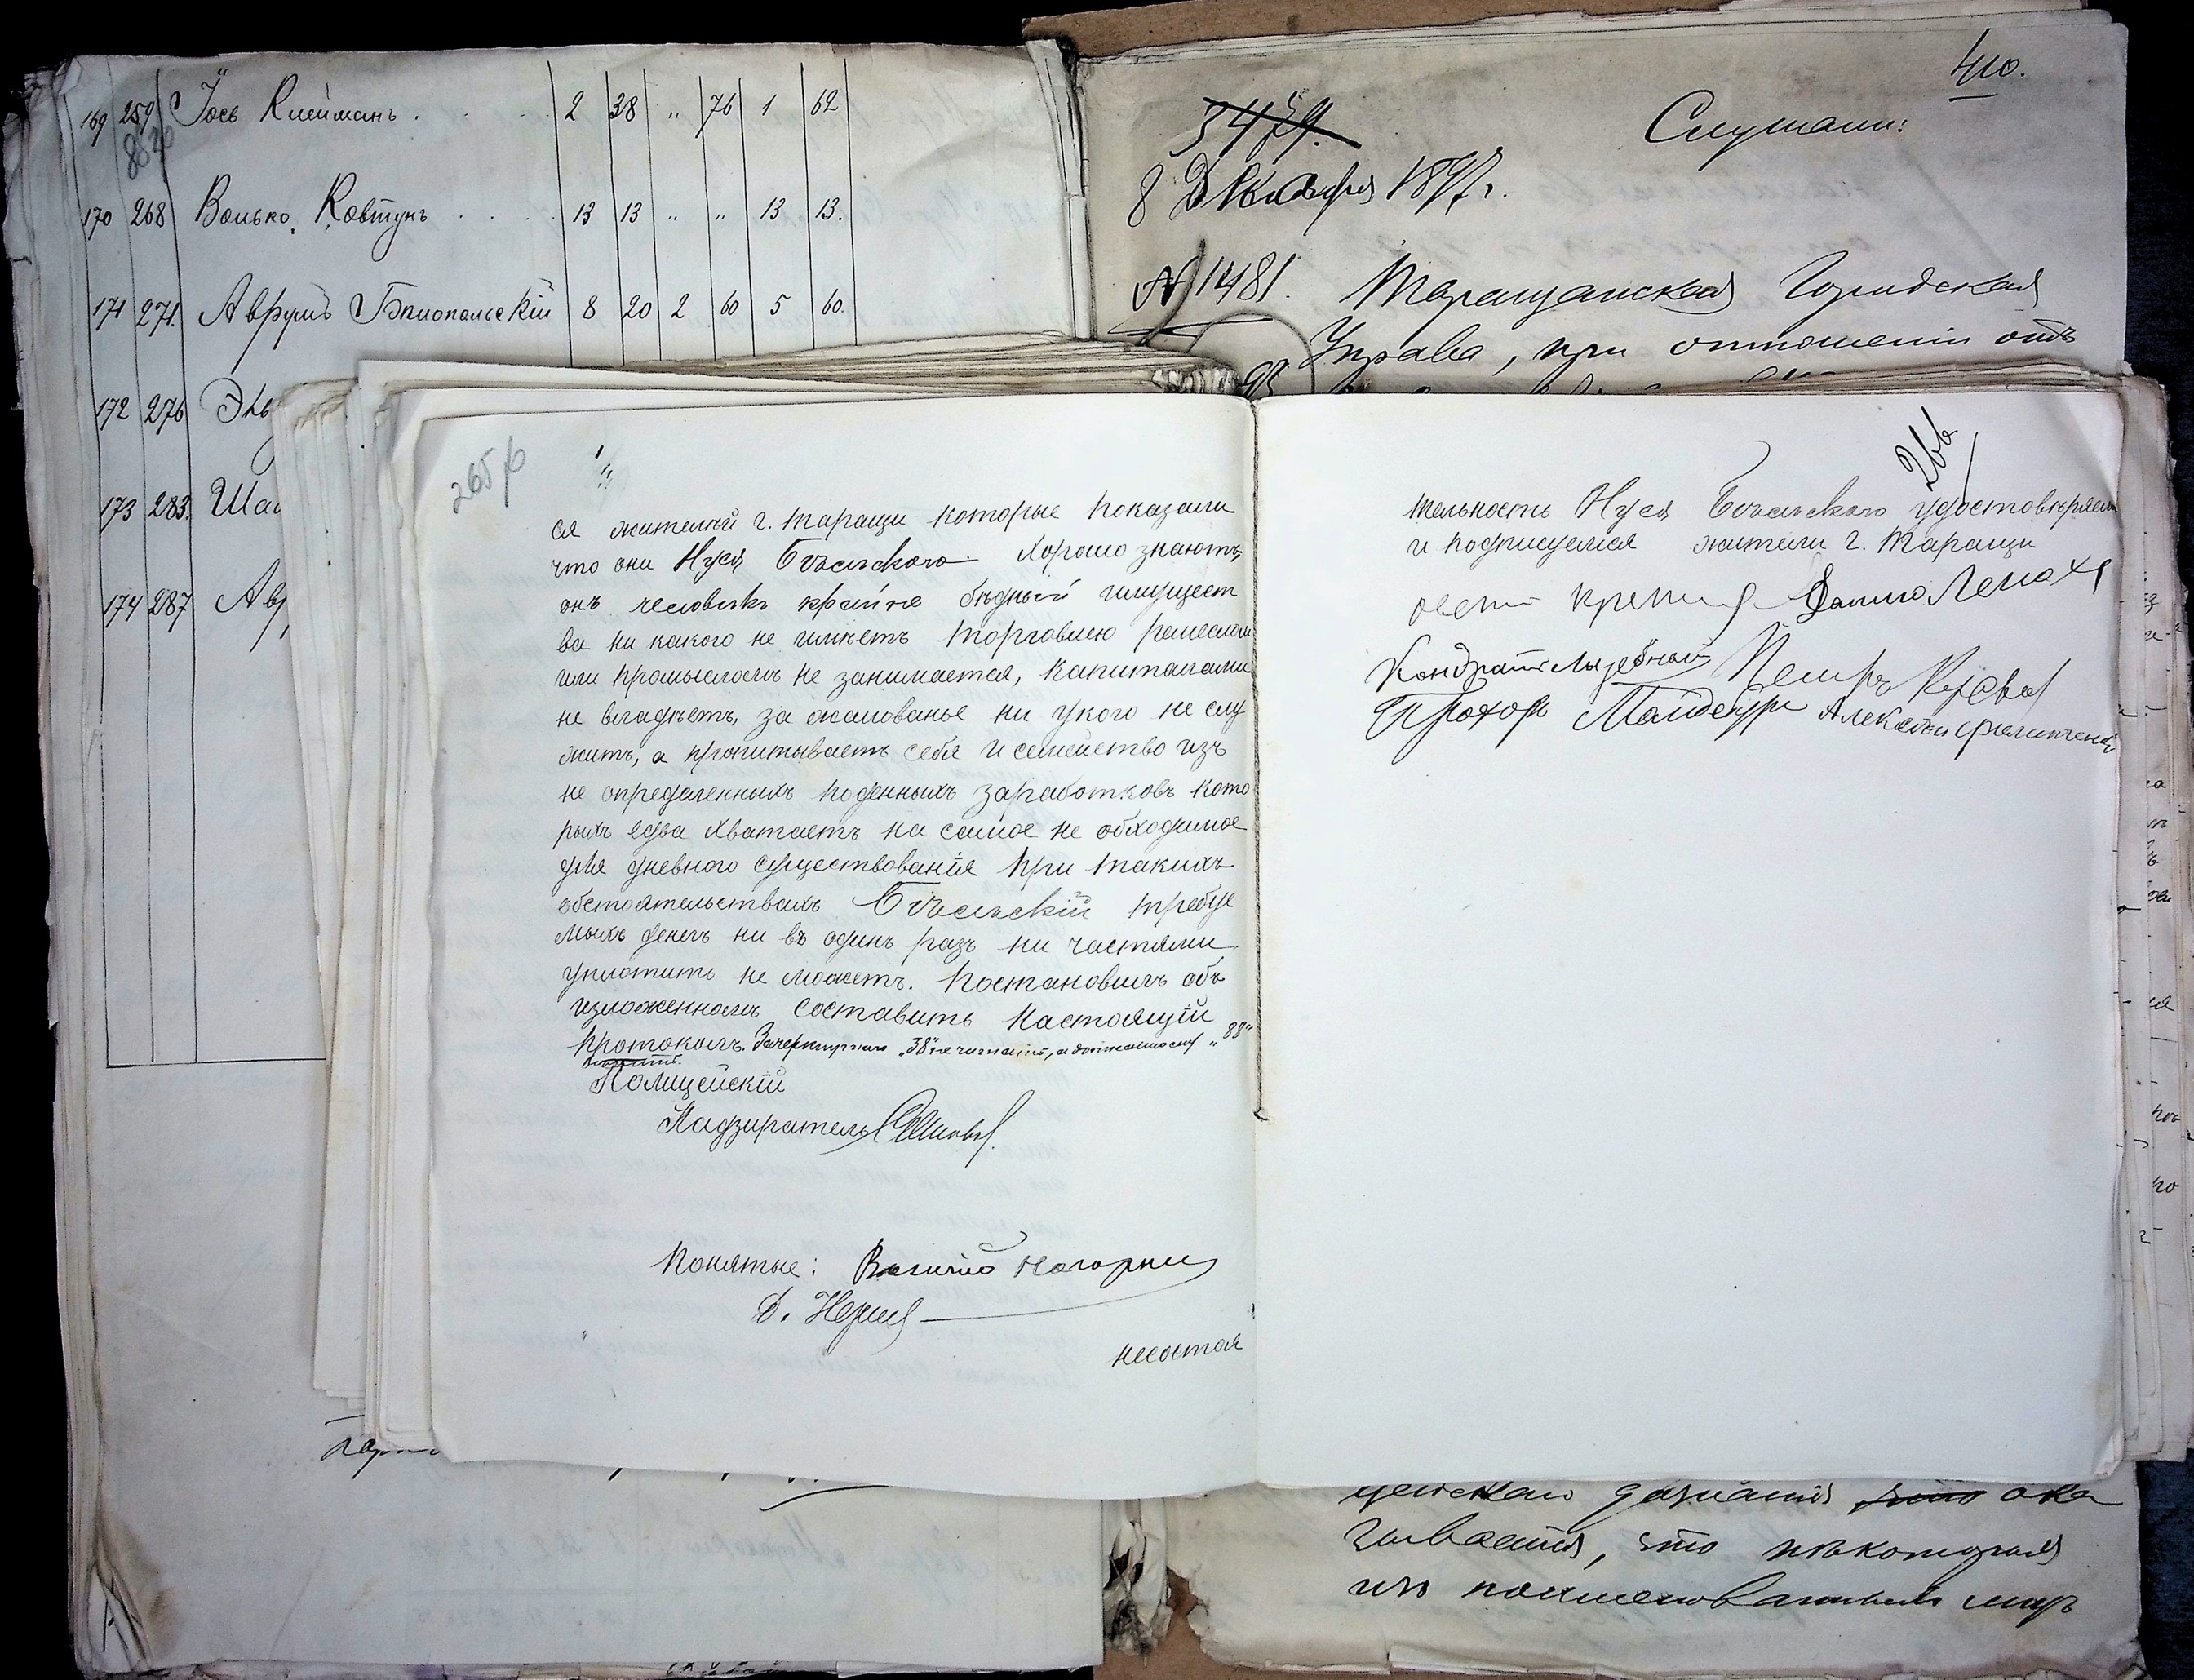 169 259 Іось Клейманъ . . . 2 38 " 76 1 62
8820
170 268 Волько Ковтунъ . . . . 13 13 " " 13 13.
171 271. Аврумъ Бялопольскій 8 20 2 60 5 60.
172 276
173 283.
174 287
410.
3479.
Слушали:
8 Декабря 1897 г.
№ 1481. Таращанская Городская
Управа, при отношеніи отъ
265 об
ся жителей г. Таращи которые показали
что они Нуся Бѣльского хорошо знаютъ,
онъ человѣкъ крайне бѣдный имущест
ва ни какого не имѣетъ торговлею ремесломъ
или промысломъ не занимается, капиталами
не владѣетъ, за жалованье ни у кого не слу
житъ, а пропитываетъ себя и семейство изъ
не определенныхъ поденныхъ заработковъ кото
рыхъ едва хватаетъ на самое не обходимое
для дневного существованія при такихъ
обстоятельствахъ Бѣльскій требуе
мыхъ денегъ ни въ одинъ разъ ни частями
уплотить не можетъ. Постановилъ объ
изложенномъ составить настоящій
протоколъ. Зачеркнутаго „38" не читать, а „88"
Полицейскій
Надзиратель
Понятые: Василій Нагорный
Д.
несостоя
266
тельность Нуся Бѣльского удостовѣряемъ
и подписуемся жители г. Таращи
Кондратъ Петръ
Прохоръ Алексѣй
цейскаго дознанія ока
зывается, что нѣкоторыя
изъ поименованныхъ лицъ